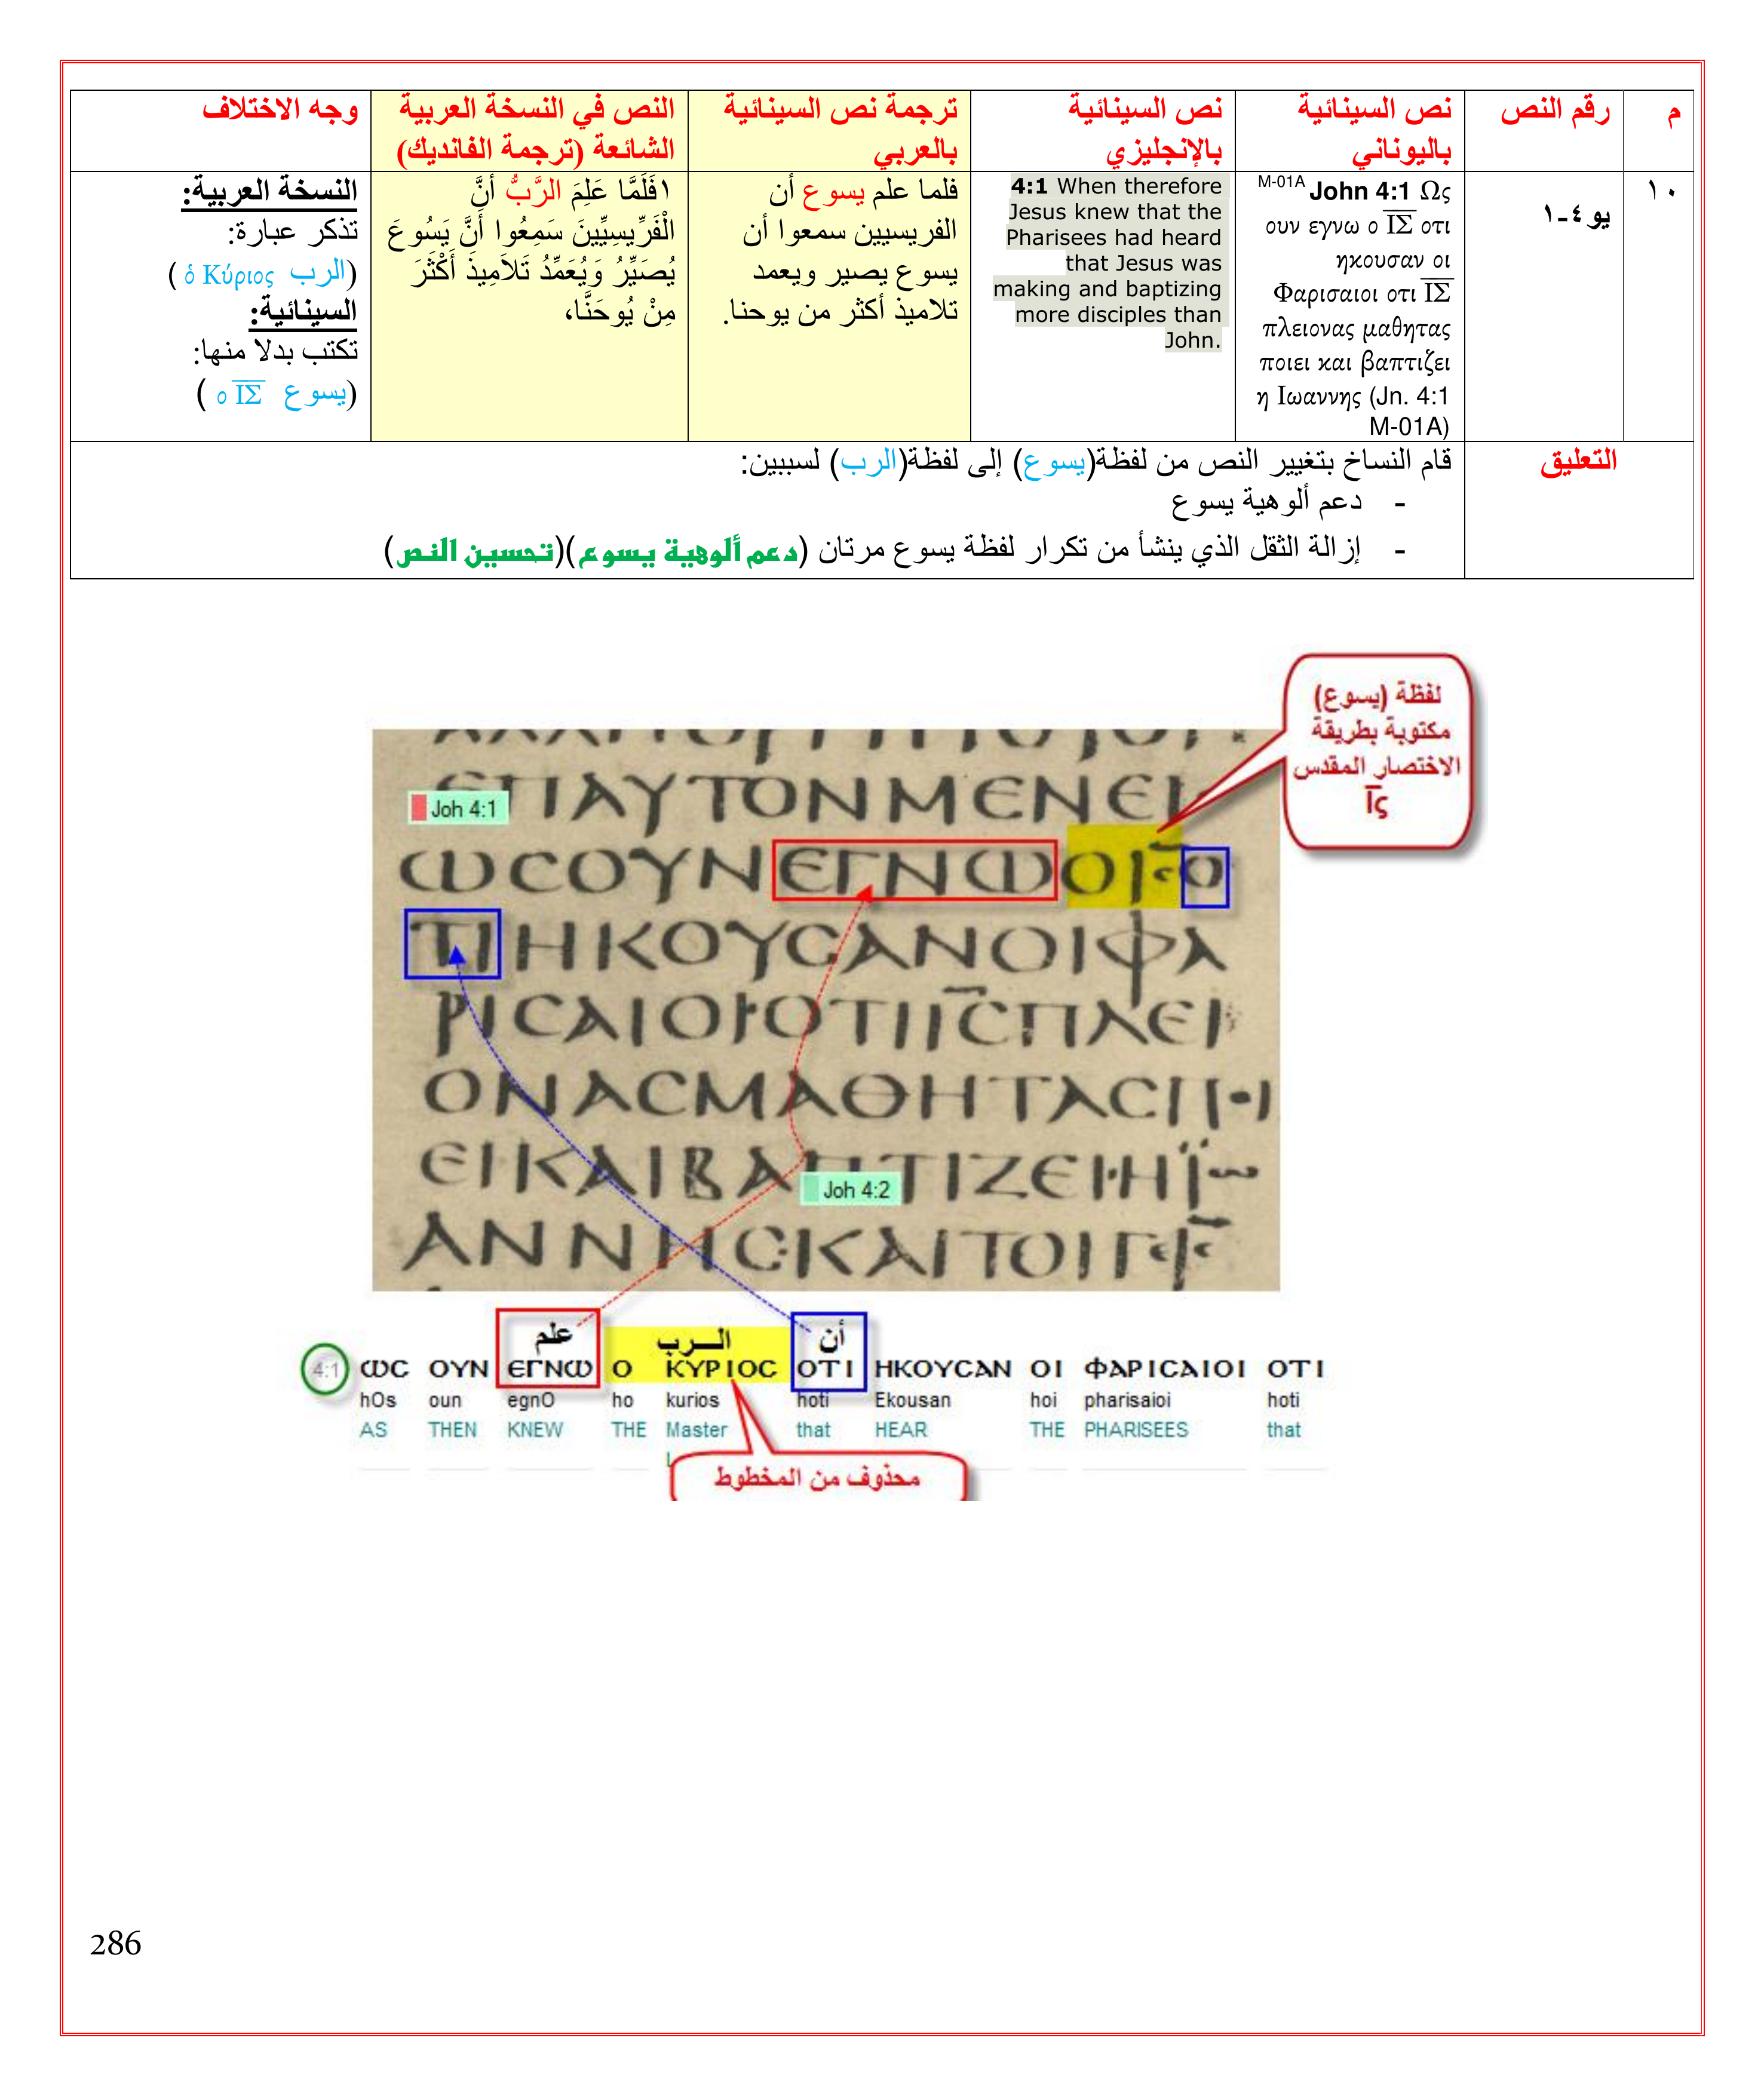 م
رقم النص
نص السينائية
باليوناني
نص السينائية
بالإنجليزي
ترجمة نص السينائية
بالعربي
النص في النسخة العربية
الشائعة (ترجمة الفانديك)
وجه الاختلاف
١٠
يو ٤-١
M-01A John 4:1 Ως
ουν εγνω ο ΙΣ οτι
ηκουσαν οι
Φαρισαιοι οτι ΙΣ
πλειονας μαθητας
ποιει και βαπτιζει
η Ιωαννης (Jn. 4:1
M-01A)
4:1 When therefore
Jesus knew that the
Pharisees had heard
that Jesus was
making and baptizing
more disciples than
John.
فلما علم يسوع أن
الفريسيين سمعوا أن
يسوع يصير ويعمد
تلاميذ أكثر من يوحنا.
١فَلَمَّا عَلِمَ الرَّبُّ أَنَّ
الْفَرِّيسِيِّينَ سَمِعُوا أَنَّ يَسُوعَ
يُصَيِّرُ وَيُعَمِّدُ تَلاَمِيذَ أَكْثَرَ
مِنْ يُوحَنَّا،
النسخة العربية:
تذكر عبارة:
(الرب ὁ Κύριος )
السينائية:
تكتب بدلا منها:
(يسوع ο ΙΣ )
التعليق
قام النساخ بتغيير النص من لفظة(يسوع) إلى لفظة(الرب) لسببين:
- دعم ألوهية يسوع
- إزالة الثقل الذي ينشأ من تكرار لفظة يسوع مرتان (دعم ألوهية يسوع)(تحسين النص)
لفظة (يسوع)
مكتوبة بطريقة
الاختصار المقدس
Ις
ΕΠΑΥΤΟΝΜΕΝΕΙ
Joh 4:1
ωϲΟΥΝΕΓΝωΟΙϲΟ
ΤΙΗΚΟΥϹΑΝΟΙΦΑ
ΡΙϹΑΙΟΙΟΤΙΙϹΠΛΕΙ
ΟΝΑϹΜΑΘΗΤΑϹΠΟΙ
ΕΙΚΑΙΒΑΠΤΙΖΕΙΗΪω
Joh 4:2
ΑΝΝΗϹΚΑΙΤΟΙΓΕ
علم الـــرب أن
4:1 ωϲ ΟΥΝ ΕΓΝω Ο ΚΥΡΙΟϹ ΟΤΙ ΗΚΟΥϹΑΝ ΟΙ ΦΑΡΙϹΑΙΟΙ ΟΤΙ
hOs oun egnO ho kurios hoti Ekousan hoi pharisaioi hoti
AS THEN KNEW THE Master that HEAR THE PHARISEES that
محذوف من المخطوط
286